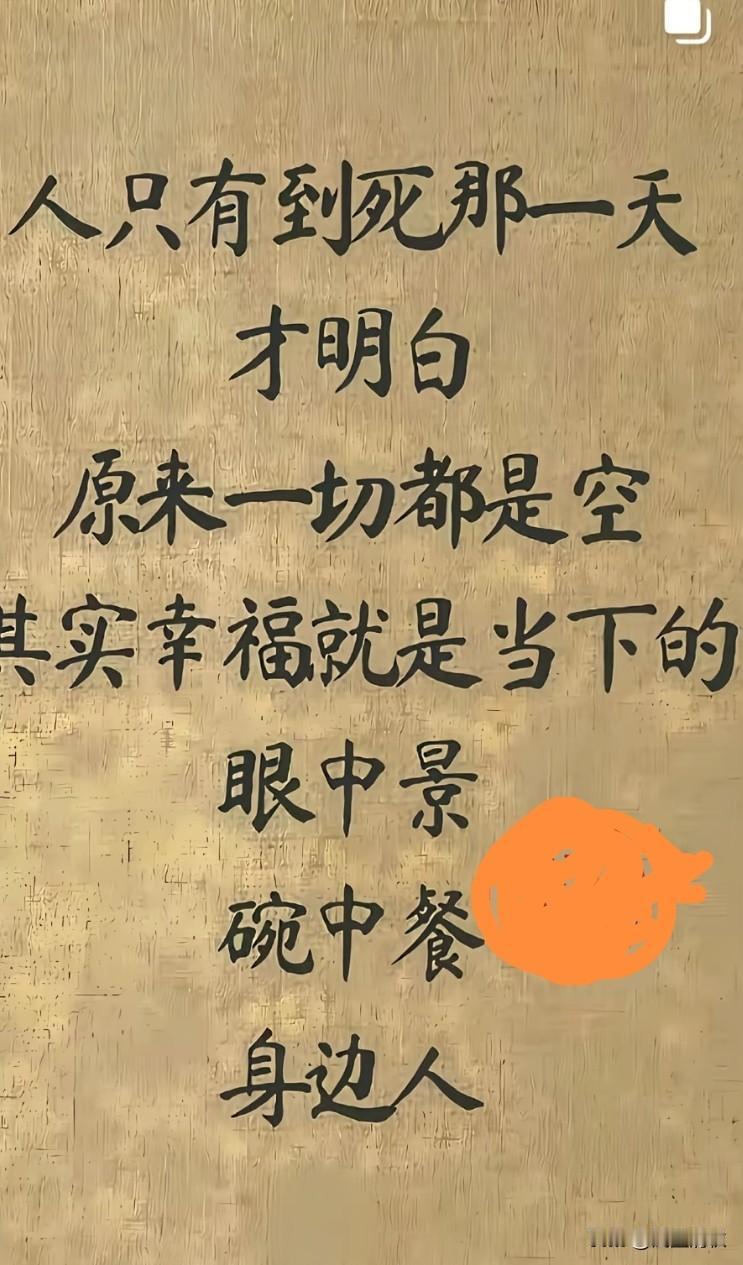 人只有到死那一天
才明白
原来一切都是空
其实幸福就是当下的
眼中景
碗中餐
身边人